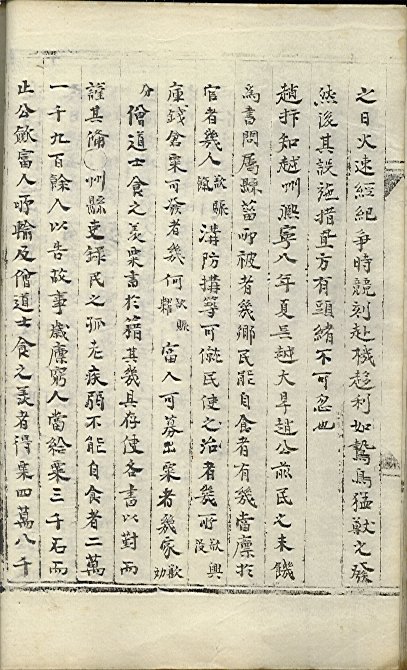 之日火速經紀爭時競刻赴機趍利如鷙鳥猛獸之發
然後其設施措置方有頭緒不可忽也
趙抃知越州熙寧八年夏吳越大旱趙公前民之未饑
爲書問屬縣菑所被者幾鄉民能自食者有幾當廩於
官者幾人欲賑溝防搆築可僦民使之治者幾所欲興役
庫錢倉粟可發者幾何欲賑糶富人可募出粟者幾家欲勸
分僧道士食之羨粟書於籍其幾具存使各書以對而
謹其備○州縣吏錄民之孤老疾弱不能自食者二萬
一千九百餘人以告故事歲廩窮人當給粟三千石而
止公斂富人所輸及僧道士食之羨者得粟四萬八千